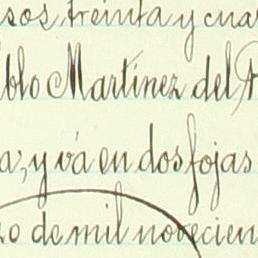 sos, treinta y cua
blo Martínez del P
a, y vá en dos fojas
zo de mil novecien